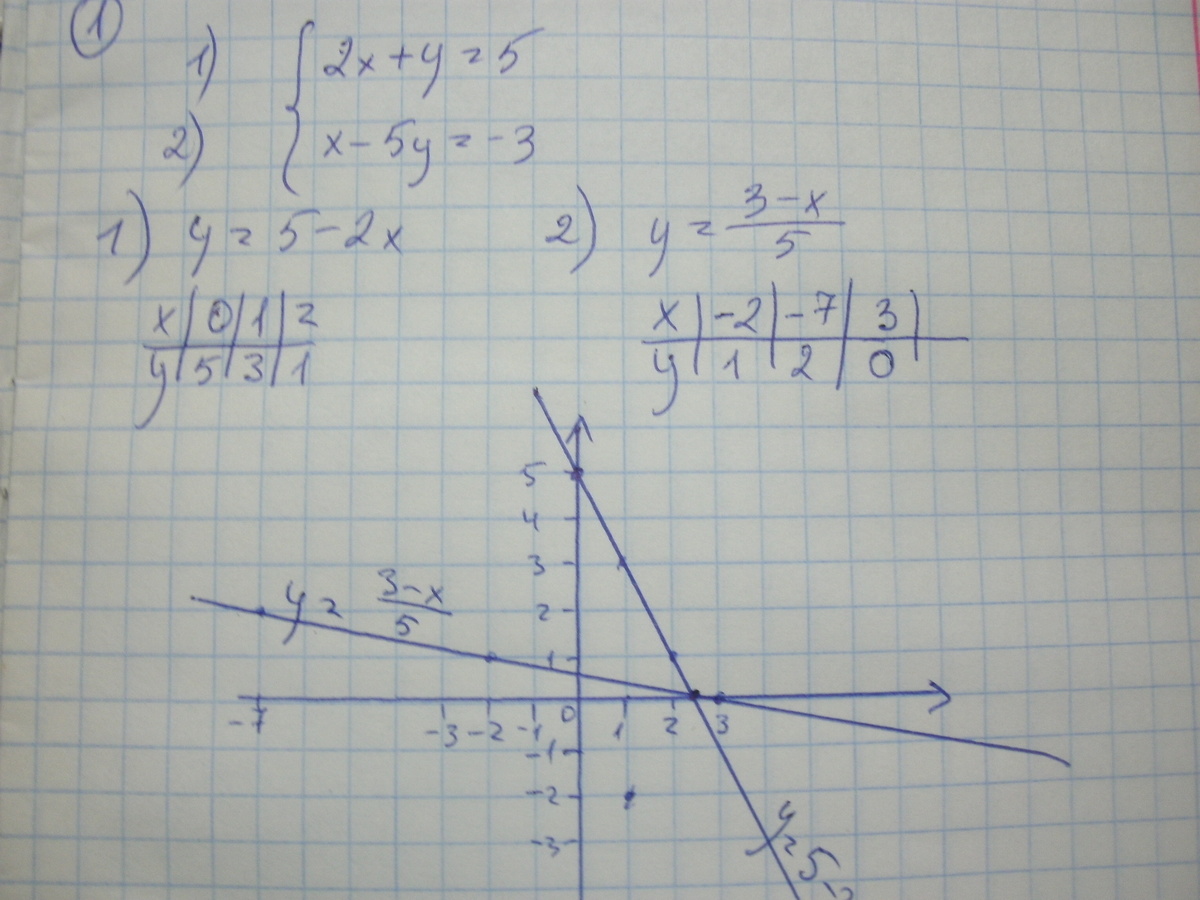 1
1) { 2x + y = 5
2) x - 5y = -3
1) y = 5 - 2x 2) y = (3 - x)/5
x | 0 | 1 | 2
y | 5 | 3 | 1
x | -2 | -7 | 3 |
y | 1 | 2 | 0
5
4
3
y = (3 - x)/5
2
1
-7 -3 -2 -1 0 1 2 3
-1
-2
-3
y = 5 - 2